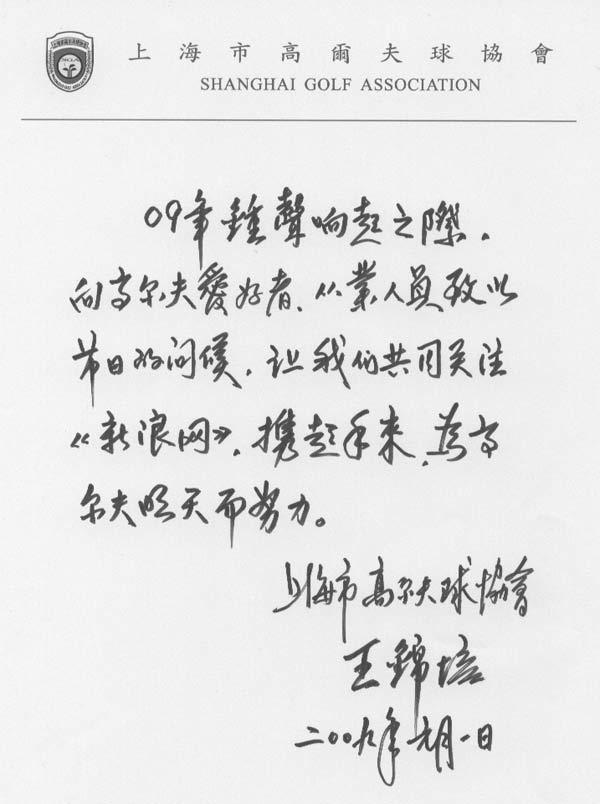 上海市高爾夫球協會
SHANGHAI GOLF ASSOCIATION
09年鍾聲响起之際，
向高尔夫愛好者、从業人員致以
节日的问候，让我们共同关注
《新浪网》，携起手来，為高
尔夫明天而努力。
上海市高尔夫球協會
王錦培
二〇〇九年元月一日